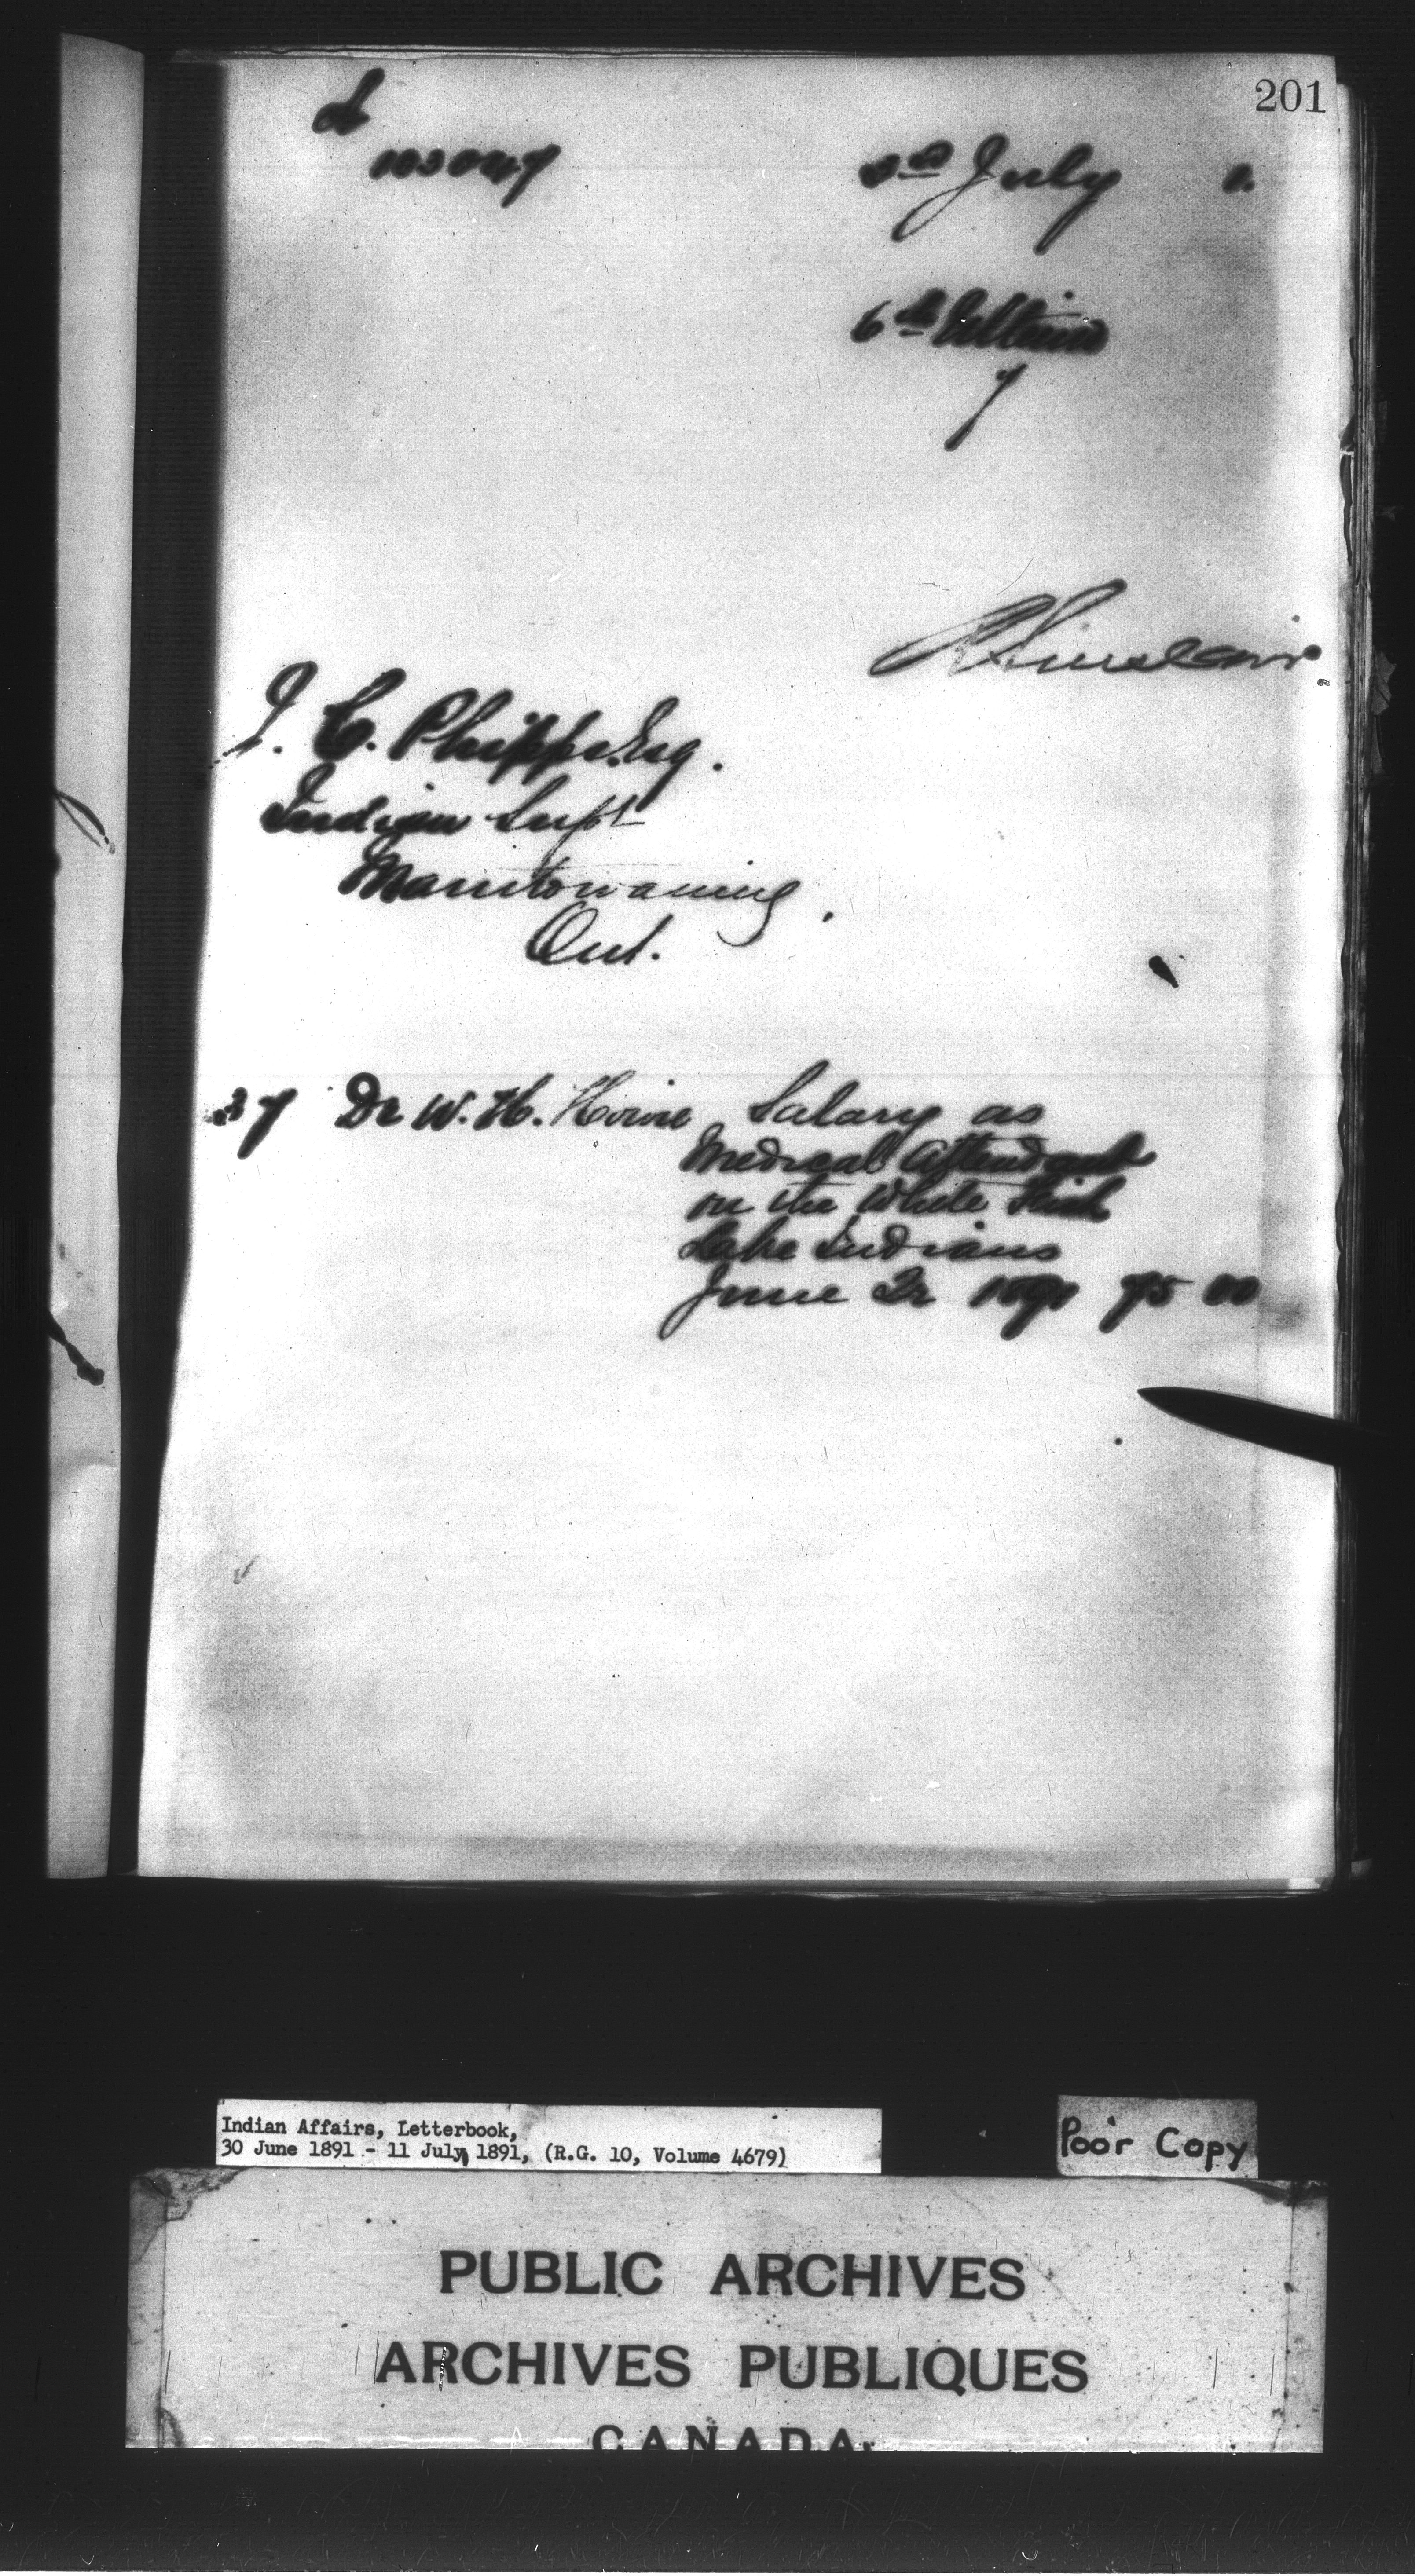 201
L
103047
3rd July 1.
6th Ultimo
7
R Sinclair
J. C. Phipps Esq.
Indian Supt
Manitowaning,
Ont.
37 Dr W. H. Howie Salary as
Medical Attendant
on the White Fish
Lake Indians
June Qr 1891 75 00
Indian Affairs, Letterbook,
30 June 1891 - 11 July 1891, (R.G. 10, Volume 4679)
Poor Copy
PUBLIC ARCHIVES
ARCHIVES PUBLIQUES
CANADA